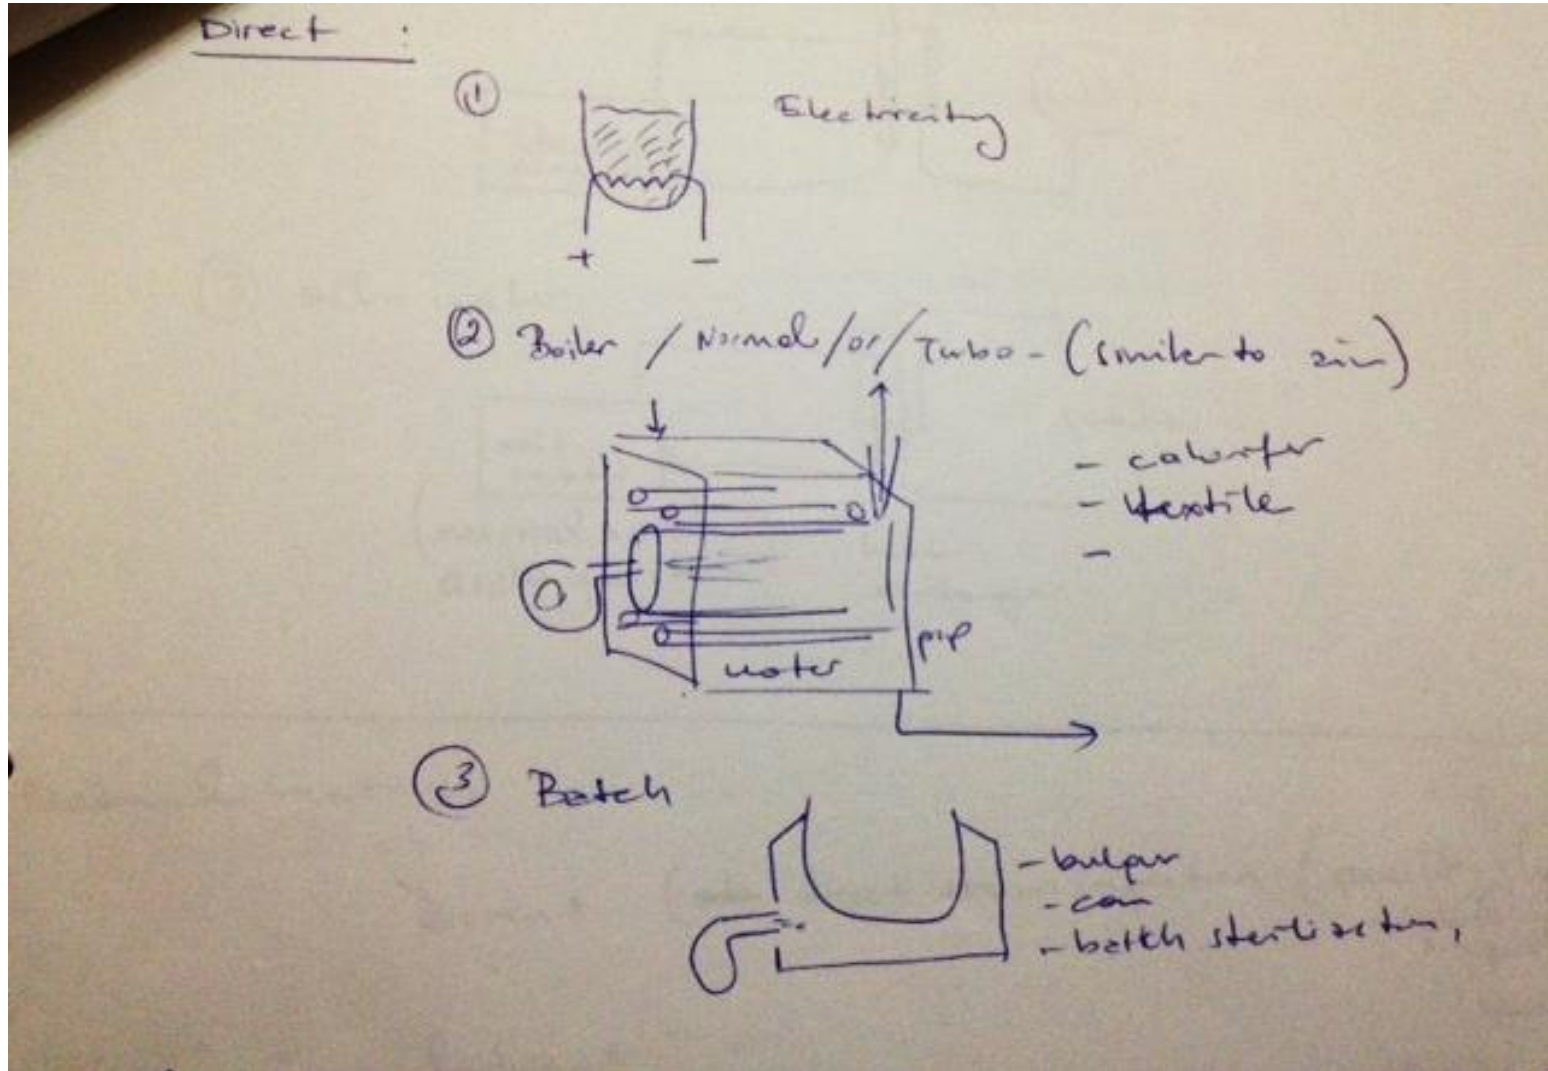 Direct :
① Electricity
+ -
② Boiler / Normal / or / Turbo - (similar to air)
- calorifer
- textile
-
water
pip
③ Batch
- bulgur
- can
- batch sterilization,